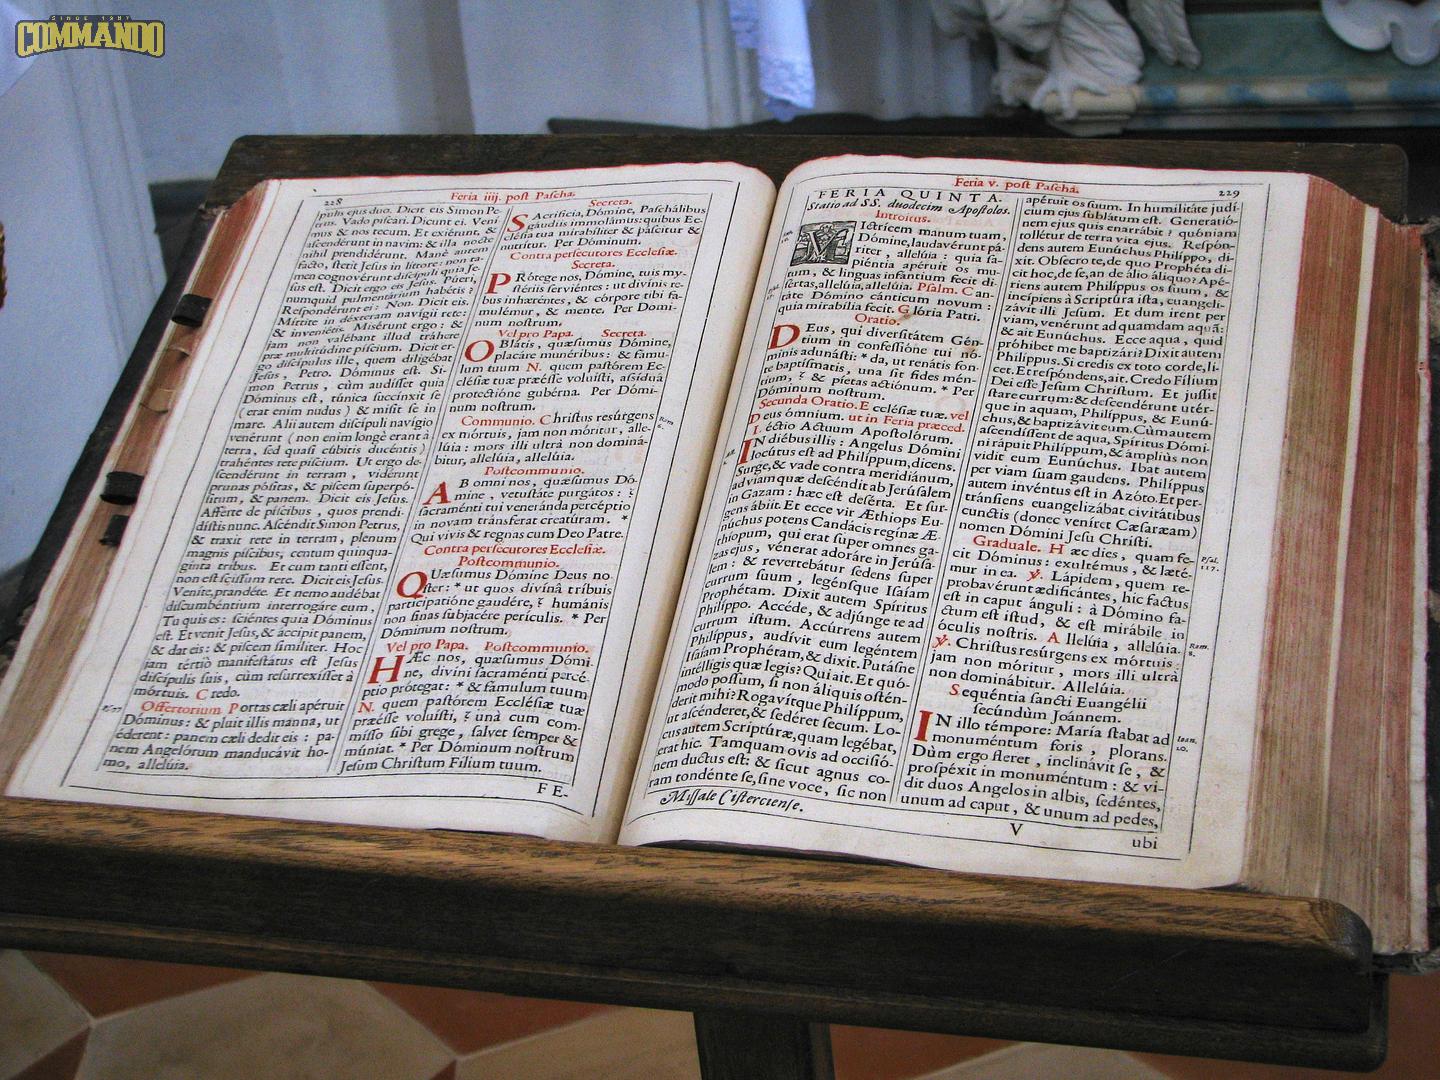 SINCE 1987
COMMANDO
228
Feria iiij. post Pascha.
pulis ejus duo. Dicit eis Simon Pe-
trus. Vado piscari. Dicunt ei. Veni-
mus & nos tecum. Et exiérunt, &
ascendérunt in navim: & illa nocte
nihil prendidérunt. Manè autem
facto, stetit Jesus in littore: non ta-
men cognovérunt discípuli quia Je-
sus est. Dicit ergo eis Jesus. Púeri,
numquid pulmentárium habétis?
Respondérunt ei: Non. Dicit eis.
Mittite in déxteram navígii rete:
& inveniétis. Misérunt ergo: &
jam non valébant illud tráhere
præ multitúdine píscium. Dicit er-
go discípulus ille, quem diligébat
Jesus, Petro. Dóminus est. Si-
mon Petrus, cùm audisset quia
Dóminus est, túnica succínxit se
(erat enim nudus) & misit se in
mare. Alii autem discípuli navígio
venérunt (non enim longè erant à
terra, sed quasi cúbitis ducéntis)
trahéntes rete píscium. Ut ergo de-
scendérunt in terram, vidérunt
prunas pósitas, & piscem superpó-
situm, & panem. Dicit eis Jesus.
Afférte de píscibus, quos prendi-
dístis nunc. Ascéndit Simon Petrus,
& traxit rete in terram, plenum
magnis píscibus, centum quinqua-
ginta tribus. Et cum tanti essent,
non est scissum rete. Dicit eis Jesus.
Venite, prandéte. Et nemo audébat
discumbéntium interrogáre eum,
Tu quis es: sciéntes quia Dóminus
est. Et venit Jesus, & áccipit panem,
& dat eis: & piscem símiliter. Hoc
jam tértiò manifestátus est Jesus
discípulis suis, cùm resurrexísset à
mórtuis. Credo.
Offertorium. Portas cæli apéruit
Dóminus: & pluit illis manna, ut
éderent: panem cæli dedit eis: pa-
nem Angelórum manducávit ho-
mo, allelúia.
Secreta.
SAcrificia, Dómine, Paschálibus
gáudiis immolámus: quibus Ec-
clésia tua mirabíliter & páscitur &
nutrítur. Per Dóminum.
Contra persecutores Ecclesiæ.
Secreta.
PRótege nos, Dómine, tuis my-
stériis serviéntes: ut divínis re-
bus inhæréntes, & córpore tibi fa-
mulémur, & mente. Per Dómi-
num nostrum.
Vel pro Papa. Secreta.
OBlátis, quæsumus Dómine,
placáre munéribus: & famu-
lum tuum N. quem pastórem Ec-
clésiæ tuæ præésse voluísti, assíduâ
protectióne gubérna. Per Dómi-
num nostrum.
Communio. Christus resúrgens
ex mórtuis, jam non móritur, alle-
lúia: mors illi ultrà non dominá-
bitur, allelúia, allelúia.
Postcommunio.
AB omni nos, quæsumus Dó-
mine, vetustáte purgátos: &
sacraménti tui veneránda percéptio
in novam tránsferat creatúram. *
Qui vivis & regnas cum Deo Patre.
Contra persecutores Ecclesiæ.
Postcommunio.
QUæsumus Dómine Deus no-
ster: * ut quos divínâ tríbuis
participatióne gaudére, & humánis
non sinas subjacére perículis. * Per
Dóminum nostrum.
Vel pro Papa. Postcommunio.
HÆc nos, quæsumus Dómi-
ne, divíni sacraménti percé-
ptio prótegat: * & fámulum tuum
N. quem pastórem Ecclésiæ tuæ
præésse voluísti, & unà cum com-
misso sibi grege, salvet semper &
múniat. * Per Dóminum nostrum
Jesum Christum Filium tuum.
FE-
Feria v. post Pascha.
229
FERIA QUINTA.
Statio ad SS. duodecim Apostolos.
Introitus.
VIctrícem manum tuam,
Dómine, laudavérunt pá-
riter, allelúia: quia sa-
piéntia apéruit os mu-
tum, & linguas infántium fecit di-
sértas, allelúia, allelúia. Psalm. Can-
táte Dómino cánticum novum:
quia mirabília fecit. Glória Patri.
Oratio.
DEus, qui diversitátem Gén-
tium in confessióne tui nó-
minis adunásti: * da, ut renátis fon-
te baptísmatis, una sit fides mén-
tium, & píetas actiónum. * Per
Dóminum nostrum.
Secunda Oratio. Ecclésiæ tuæ. vel
Deus ómnium. ut in Feria præced.
Léctio Actuum Apostolórum.
IN diébus illis: Angelus Dómini
locútus est ad Philíppum, dicens.
Surge, & vade contra meridiánum,
ad viam quæ descéndit ab Jerúsalem
in Gazam: hæc est desérta. Et sur-
gens ábiit. Et ecce vir Æthíops Eu-
núchus potens Candácis regínæ Æ-
thíopum, qui erat super omnes ga-
zas ejus, vénerat adoráre in Jerúsa-
lem: & revertebátur sedens super
currum suum, legénsque Isaíam
Prophétam. Dixit autem Spíritus
Philíppo. Accéde, & adjúnge te ad
currum istum. Accúrrens autem
Philíppus, audívit eum legéntem
Isaíam Prophétam, & dixit. Putásne
intélligis quæ legis? Qui ait. Et quó-
modo possum, si non áliquis ostén-
derit mihi? Rogavítque Philíppum,
ut ascénderet, & sedéret secum. Lo-
cus autem Scriptúræ, quam legébat,
erat hic. Tamquam ovis ad occisió-
nem ductus est: & sicut agnus co-
ram tondénte se, sine voce, sic non
Missale Cisterciense.
apéruit os suum. In humilitáte judí-
cium ejus sublátum est. Generatió-
nem ejus quis enarrábit? quóniam
tollétur de terra vita ejus. Respón-
dens autem Eunúchus Philíppo, di-
xit. Obsecro te, de quo Prophéta di-
cit hoc, de se, an de álio áliquo? Apé-
riens autem Philíppus os suum, &
incípiens à Scriptúra ista, euangeli-
závit illi Jesum. Et dum irent per
viam, venérunt ad quamdam aquã:
& ait Eunúchus. Ecce aqua, quid
próhibet me baptizári? Dixit autem
Philíppus. Si credis ex toto corde, li-
cet. Et respóndens, ait. Credo Fílium
Dei esse Jesum Christum. Et jussit
stare currum: & descendérunt utér-
que in aquam, Philíppus, & Eunú-
chus, & baptizávit eum. Cùm autem
ascendíssent de aqua, Spíritus Dómi-
ni rápuit Philíppum, & ámplius non
vidit eum Eunúchus. Ibat autem
per viam suam gaudens. Philíppus
autem invéntus est in Azóto. Et per-
tránsiens euangelizábat civitátibus
cunctis (donec veníret Cæsaræam)
nomen Dómini Jesu Christi.
Graduale. Hæc dies, quam fe-
cit Dóminus: exultémus, & læté-
mur in ea. ℣. Lápidem, quem re-
probavérunt ædificántes, hic factus
est in caput ánguli: à Dómino fa-
ctum est istud, & est mirábile in
óculis nostris. Allelúia, allelúia.
℣. Christus resúrgens ex mórtuis:
jam non móritur, mors illi ultrà
non dominábitur. Allelúia.
Sequéntia sancti Euangélii
secúndùm Joánnem.
IN illo témpore: María stabat ad
monuméntum foris, plorans.
Dùm ergo fleret, inclinávit se, &
prospéxit in monuméntum: & vi-
dit duos Angelos in albis, sedéntes,
unum ad caput, & unum ad pedes,
V
ubi